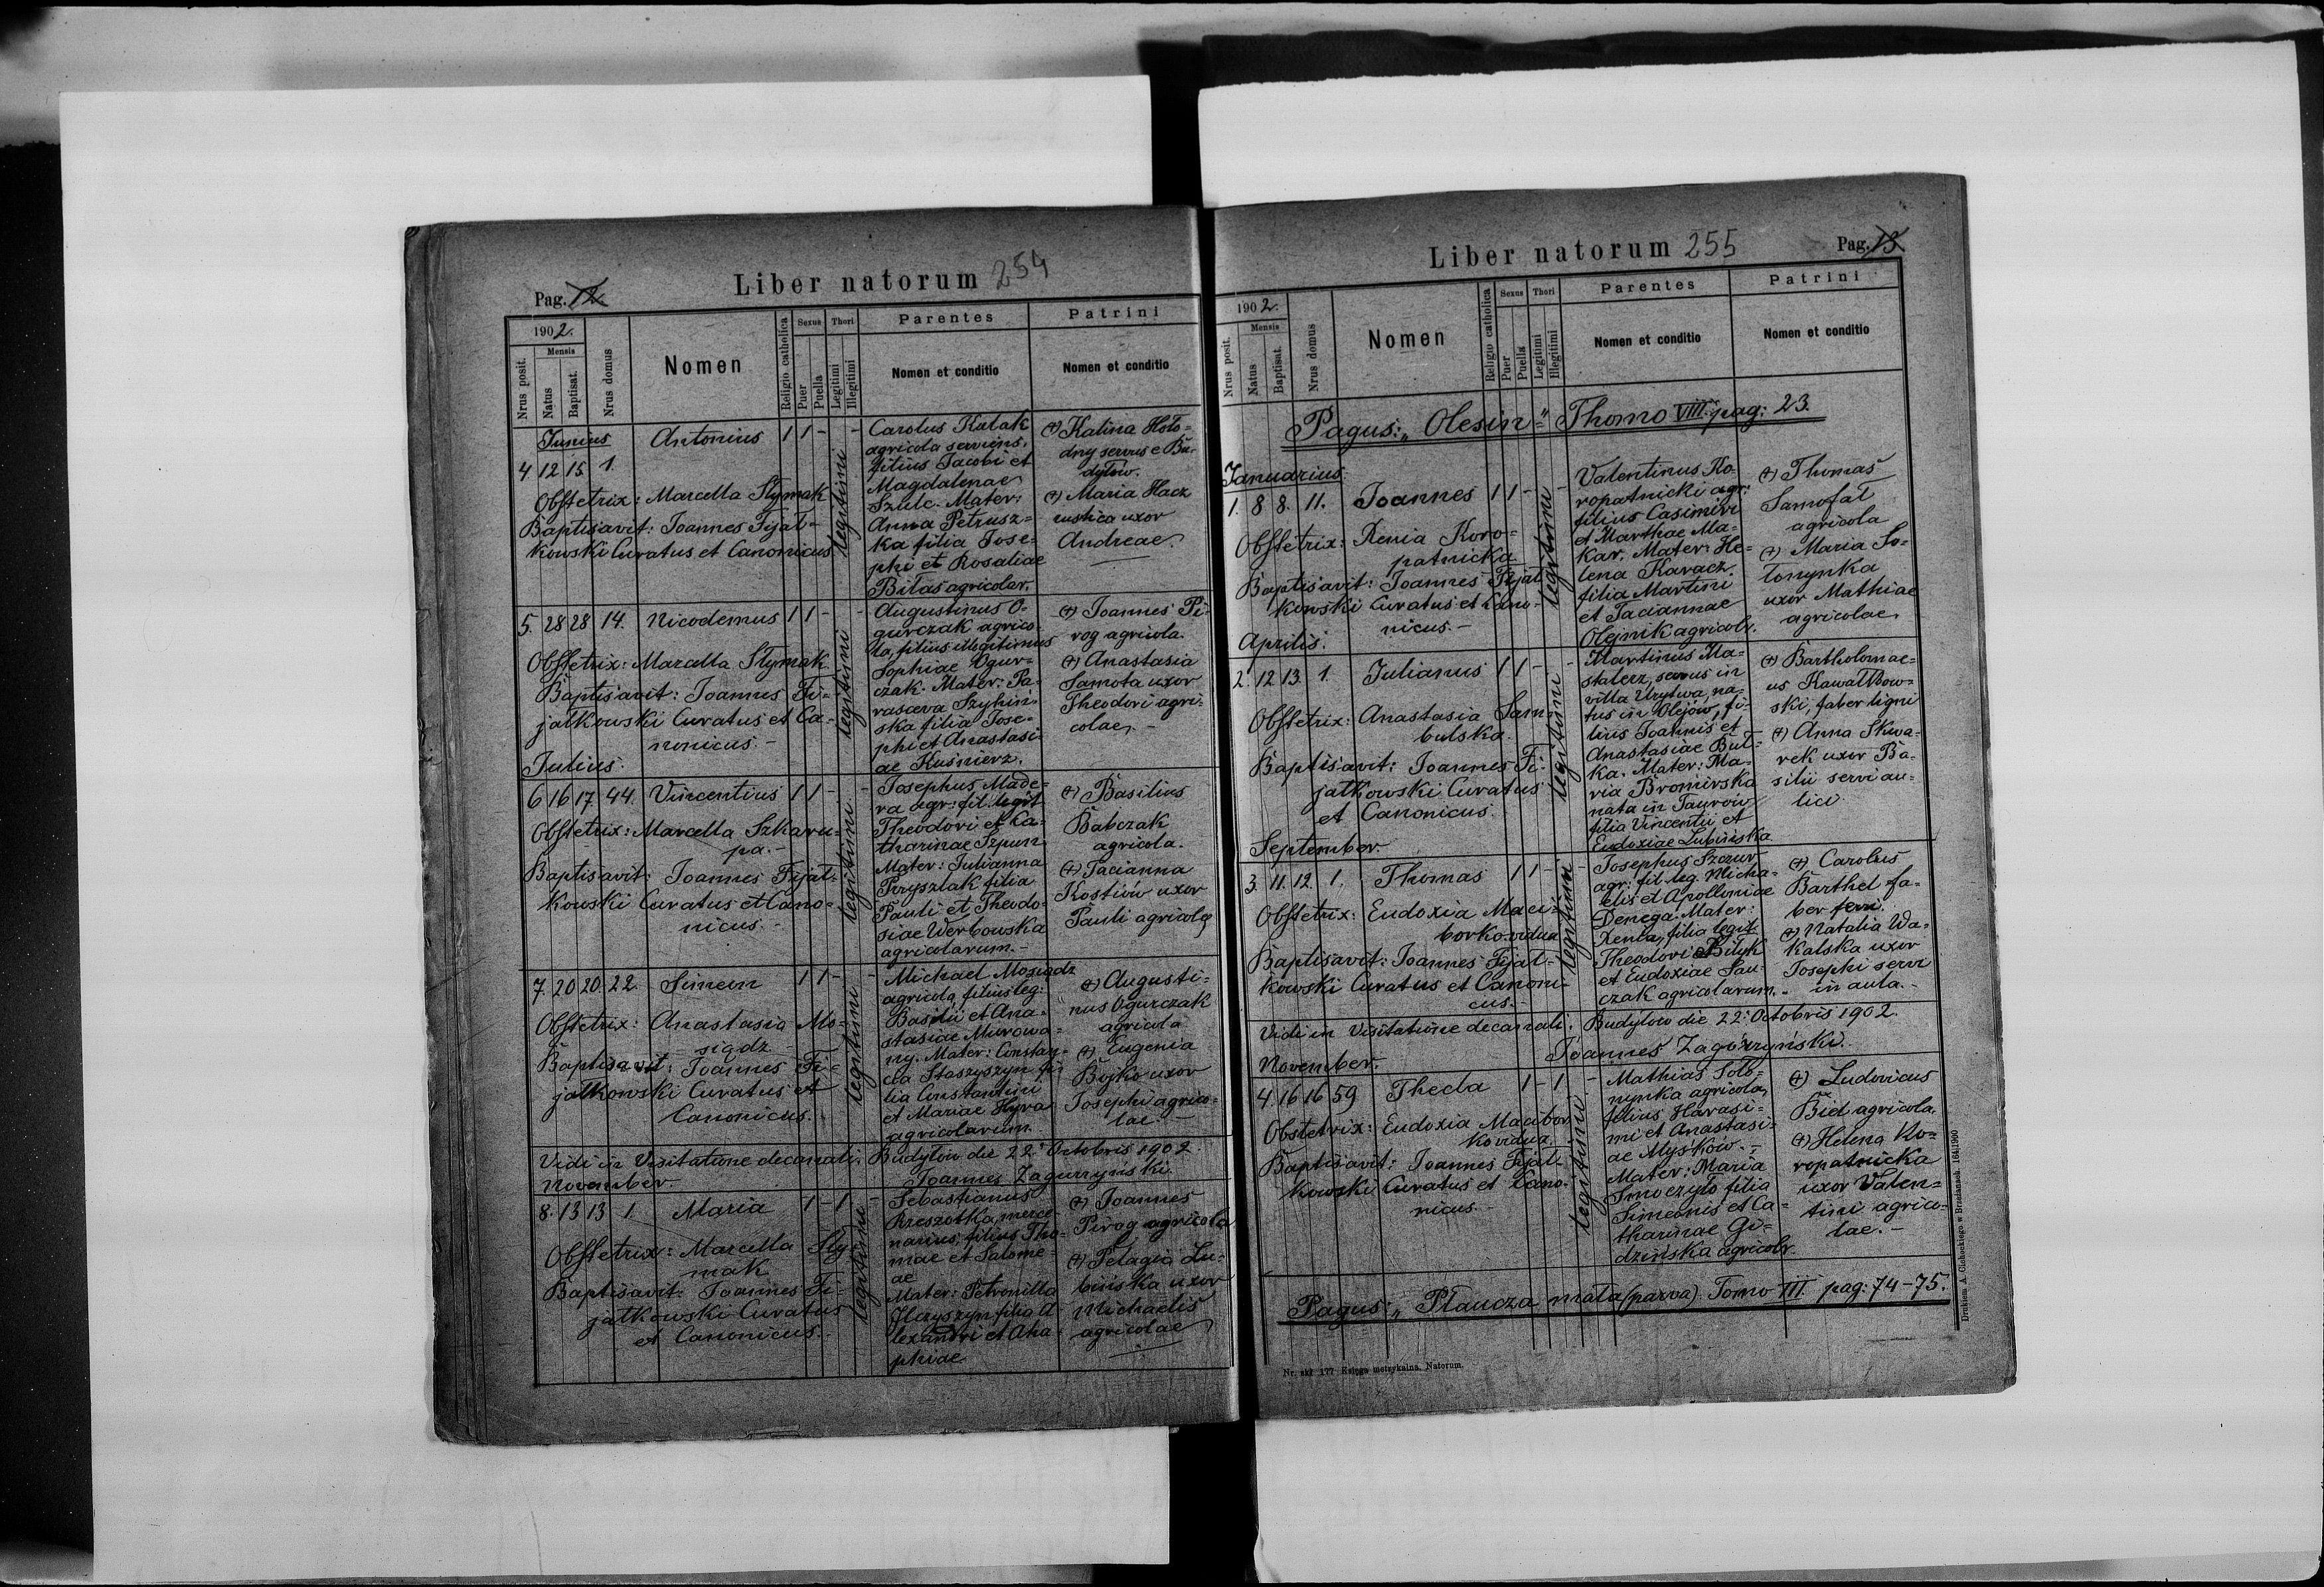 Pag. 12.
Liber natorum 254
1902.
Nrus posit.
Mensis
Natus
Baptisat.
Nrus domus
Nomen
Religio catholica
Sexus
Puer
Puella
Thori
Legitimi
Illegitimi
Parentes
Nomen et conditio
Patrini
Nomen et conditio
Junius
4 12 15. 1. Antonius 1 1 - -
Obstetrix: Marcella Slymak
Baptisavit: Joannes Fijał=
kowski Curatus et Canonicus
legitimi
Carolus Kałak
agricola serviens,
filius Jacobi et
Magdalenae
Szulc. Mater:
Anna Petrusz=
ka filia Jose=
phi et Rosaliae
Bitas agricolar.
(+) Kalina Hoło=
dny servus e Bu=
dyłów.
(+) Maria Hacz
rustica uxor
Andreae.
5. 28 28 14. Nicodemus 1 1 - -
Obstetrix: Marcella Slymak
Baptisavit: Joannes Fi=
jałkowski Curatus et Ca=
nonicus. -
legitimi
Augustinus O-
gurczak agrico=
la, filius illegitimus
Sophiae Ogur=
czak. Mater: Pa=
rasceva Szyhin=
ska filia Jose=
phi et Anastasi=
ae Kuśnierz.
(+) Joannes Pi=
rog agricola.
(+) Anastasia
Samota uxor
Theodori agri=
colae. -
Julius.
6 16 17 44. Vincentius 1 1 - -
Obstetrix: Marcella Szkaru=
pa. -
Baptisavit: Joannes Fijał=
kowski Curatus et Cano=
nicus. -
legitimi
Josephus Made=
ra agr: fil. legit
Theodori et Ca=
tharinae Szpun
Mater: Julianna
Przyszlak filia
Pauli et Theodo=
siae Werbowska
agricolarum. -
(+) Basilius
Babczak
agricola.
(+) Tacianna
Kostiów uxor
Pauli agricolae
7. 20 20. 22. Simeon 1 1 - -
Obstetrix: Anastasia Mo=
siądz -
Baptisavit: Joannes Fi=
jałkowski Curatus et
Canonicus. -
legitimi
Michael Mosiądz
agricola, filius leg:
Basilii et Ana=
stasiae Murowa=
ny. Mater: Constan=
cia Staszyszyn fi=
lia Constantini
et Mariae Hyra
agricolarum.
(+) Augusti=
nus Ogurczak
agricola
(+) Eugenia
Bojko uxor
Josephi agrico=
lae. -
Vidi in Visitatione decanali. Budyłów die 22. Octobris 1902.
Joannes Zagórzyński.
November
8. 13 13 1. Maria 1 - 1 -
Obstetrix: Marcella Sly=
mak
Baptisavit: Joannes Fi=
jałkowski Curatus
et Canonicus. -
legitimi
Sebastianus
Rzeszotka, merce=
narius, filius Tho=
mae et Salome=
ae
Mater: Petronilla
Ilczyszyn filia A=
lexandri et Aha=
phiae
(+) Joannes
Pirog agricola
(+) Pelagia Lu=
bińska uxor
Michaelis
agricolae
Liber natorum 255
Pag. 13.
1902.
Nrus posit.
Mensis
Natus
Baptisat.
Nrus domus
Nomen
Religio catholica
Sexus
Puer
Puella
Thori
Legitimi
Illegitimi
Parentes
Nomen et conditio
Patrini
Nomen et conditio
Pagus: „Olesin" Thomo VIII. pag: 23.
Januarius
1. 8 8. 11. Joannes 1 1 - -
Obstetrix: Xenia Koro=
patnicka.
Baptisavit: Joannes Fijał=
kowski Curatus et Cano=
nicus. -
legitimi
Valentinus Ko=
ropatnicki agr:
filius Casimiri
et Marthae Ma=
kar. Mater: He=
lena Karacz.
filia Martini
et Taciannae
Olejnik agricolr.
(+) Thomas
Samofał
agricola
(+) Maria So=
łonynka
uxor Mathiae
agricolae
Aprilis.
2. 12 13. 1. Julianus 1 1 - -
Obstetrix: Anastasia Sam=
bulska.
Baptisavit: Joannes Fi=
jałkowski Curatus
et Canonicus.
legitimi
Martinus Ma=
stalerz, servus in
villa Urytwa, na=
tus in Olejów, fi=
lius Joannis et
Anastasiae But=
ka. Mater: Ma=
ria Bromirska
nata in Taurów
filia Vincentii et
Eudoxiae Lubińska
(+) Bartholomae=
us Kawałkow=
ski, faber ligni
(+) Anna Skwa=
rek uxor Ba=
silii servi au=
lici.
September.
3. 11. 12. 1. Thomas 1 1 - -
Obstetrix: Eudoxia Maci=
borko vidua
Baptisavit: Joannes Fijał=
kowski Curatus et Canoni=
cus. -
legitimi
Josephus Szczur
agr: fil. leg. Micha=
elis et Apolloniae
Denega. Mater:
Xenia, filia legit.
Theodori Bilyk
et Eudoxiae Sau=
czak agricolarum. -
(+) Carolus
Barthel fa=
ber ferri.
(+) Natalia Wa=
kalska uxor
Josephi servi
in aula. -
Vidi in Visitatione decanali. Budyłów die 22. Octobris 1902.
Joannes Zagórzyński.
November.
4. 16 16 59 Thecla 1 - 1 -
Obstetrix: Eudoxia Macibor
ko vidua.
Baptisavit: Joannes Fijał=
kowski Curatus et Cano=
nicus. -
legitimi
Mathias Soło=
nynka agricola,
filius Harasi=
mi et Anastasi=
ae Myśków. -
Mater: Maria
Smoczyło filia
Simeonis et Ca=
tharinae Gi=
dzińska agricolr.
(+) Ludovicus
Bieł agricola.
(+) Helena Ko=
ropatnicka
uxor Valen=
tini agrico=
lae. -
Pagus: „Płaucza mała (parva). Tomo III. pag: 74-75.
Nr. skł. 177 Księga metrykalna. Natorum.
Drukiem A. Głuchockiego w Brzeżanach. 164/1900